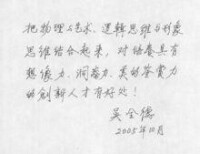 把物理与艺术、逻辑思维与形象
思维结合起来，对培养具有
想象力、洞察力、美的鉴赏力
的创新人才有好处！
吴全德
2005年10月